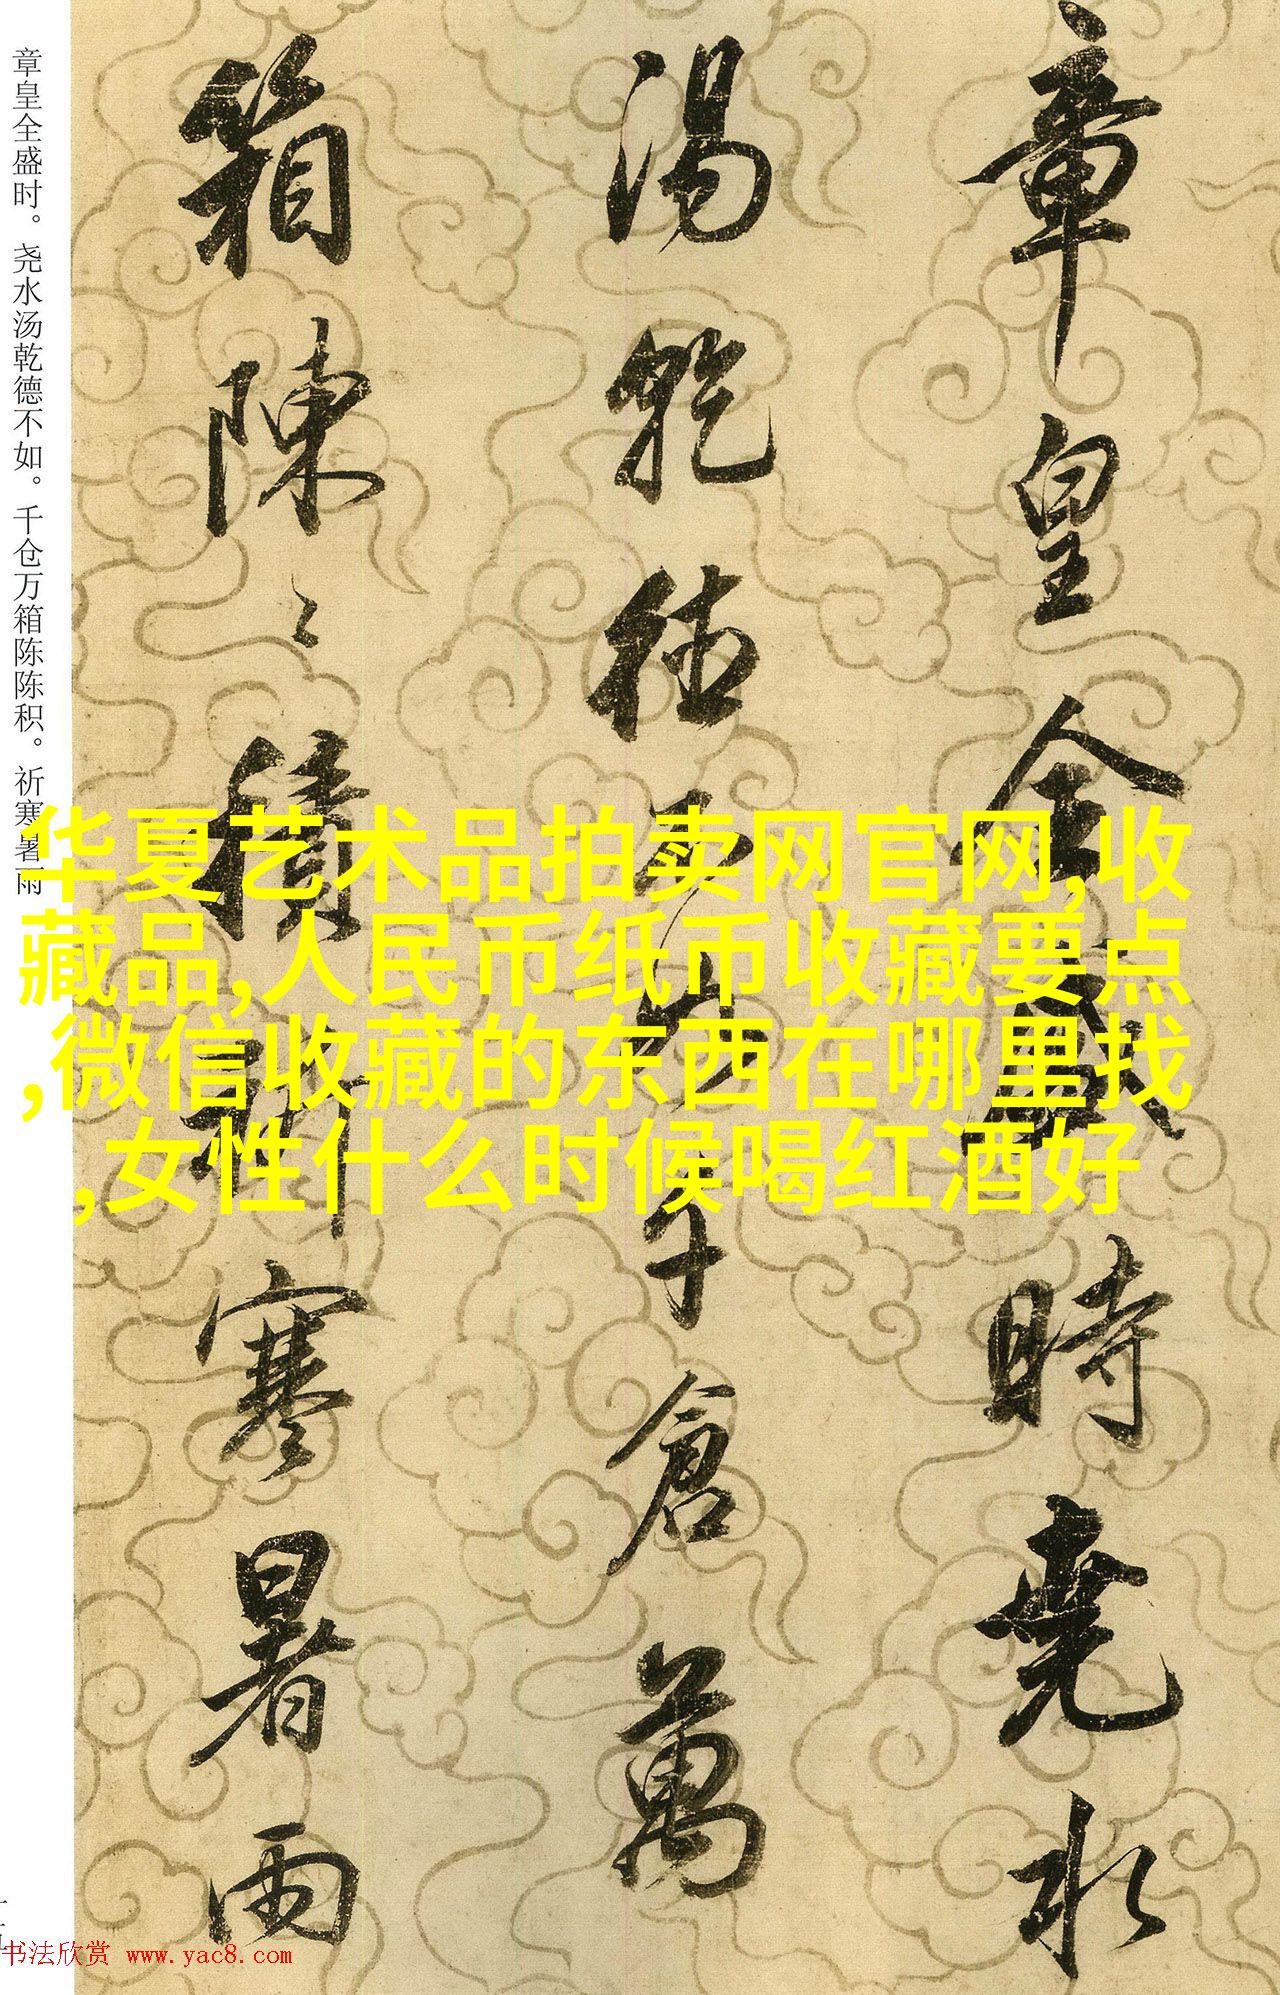 章皇全盛時堯水
湯乾德不如千倉萬
箱陳〻積祈寒暑雨
章皇全盛时。尧水汤乾德不如。千仓万箱陈陈积。祈寒暑雨
华夏艺术品拍卖网官网,收
藏品,人民币纸币收藏要点
,微信收藏的东西在哪里找
,女性什么时候喝红酒好
书法欣赏 www.yac8.com